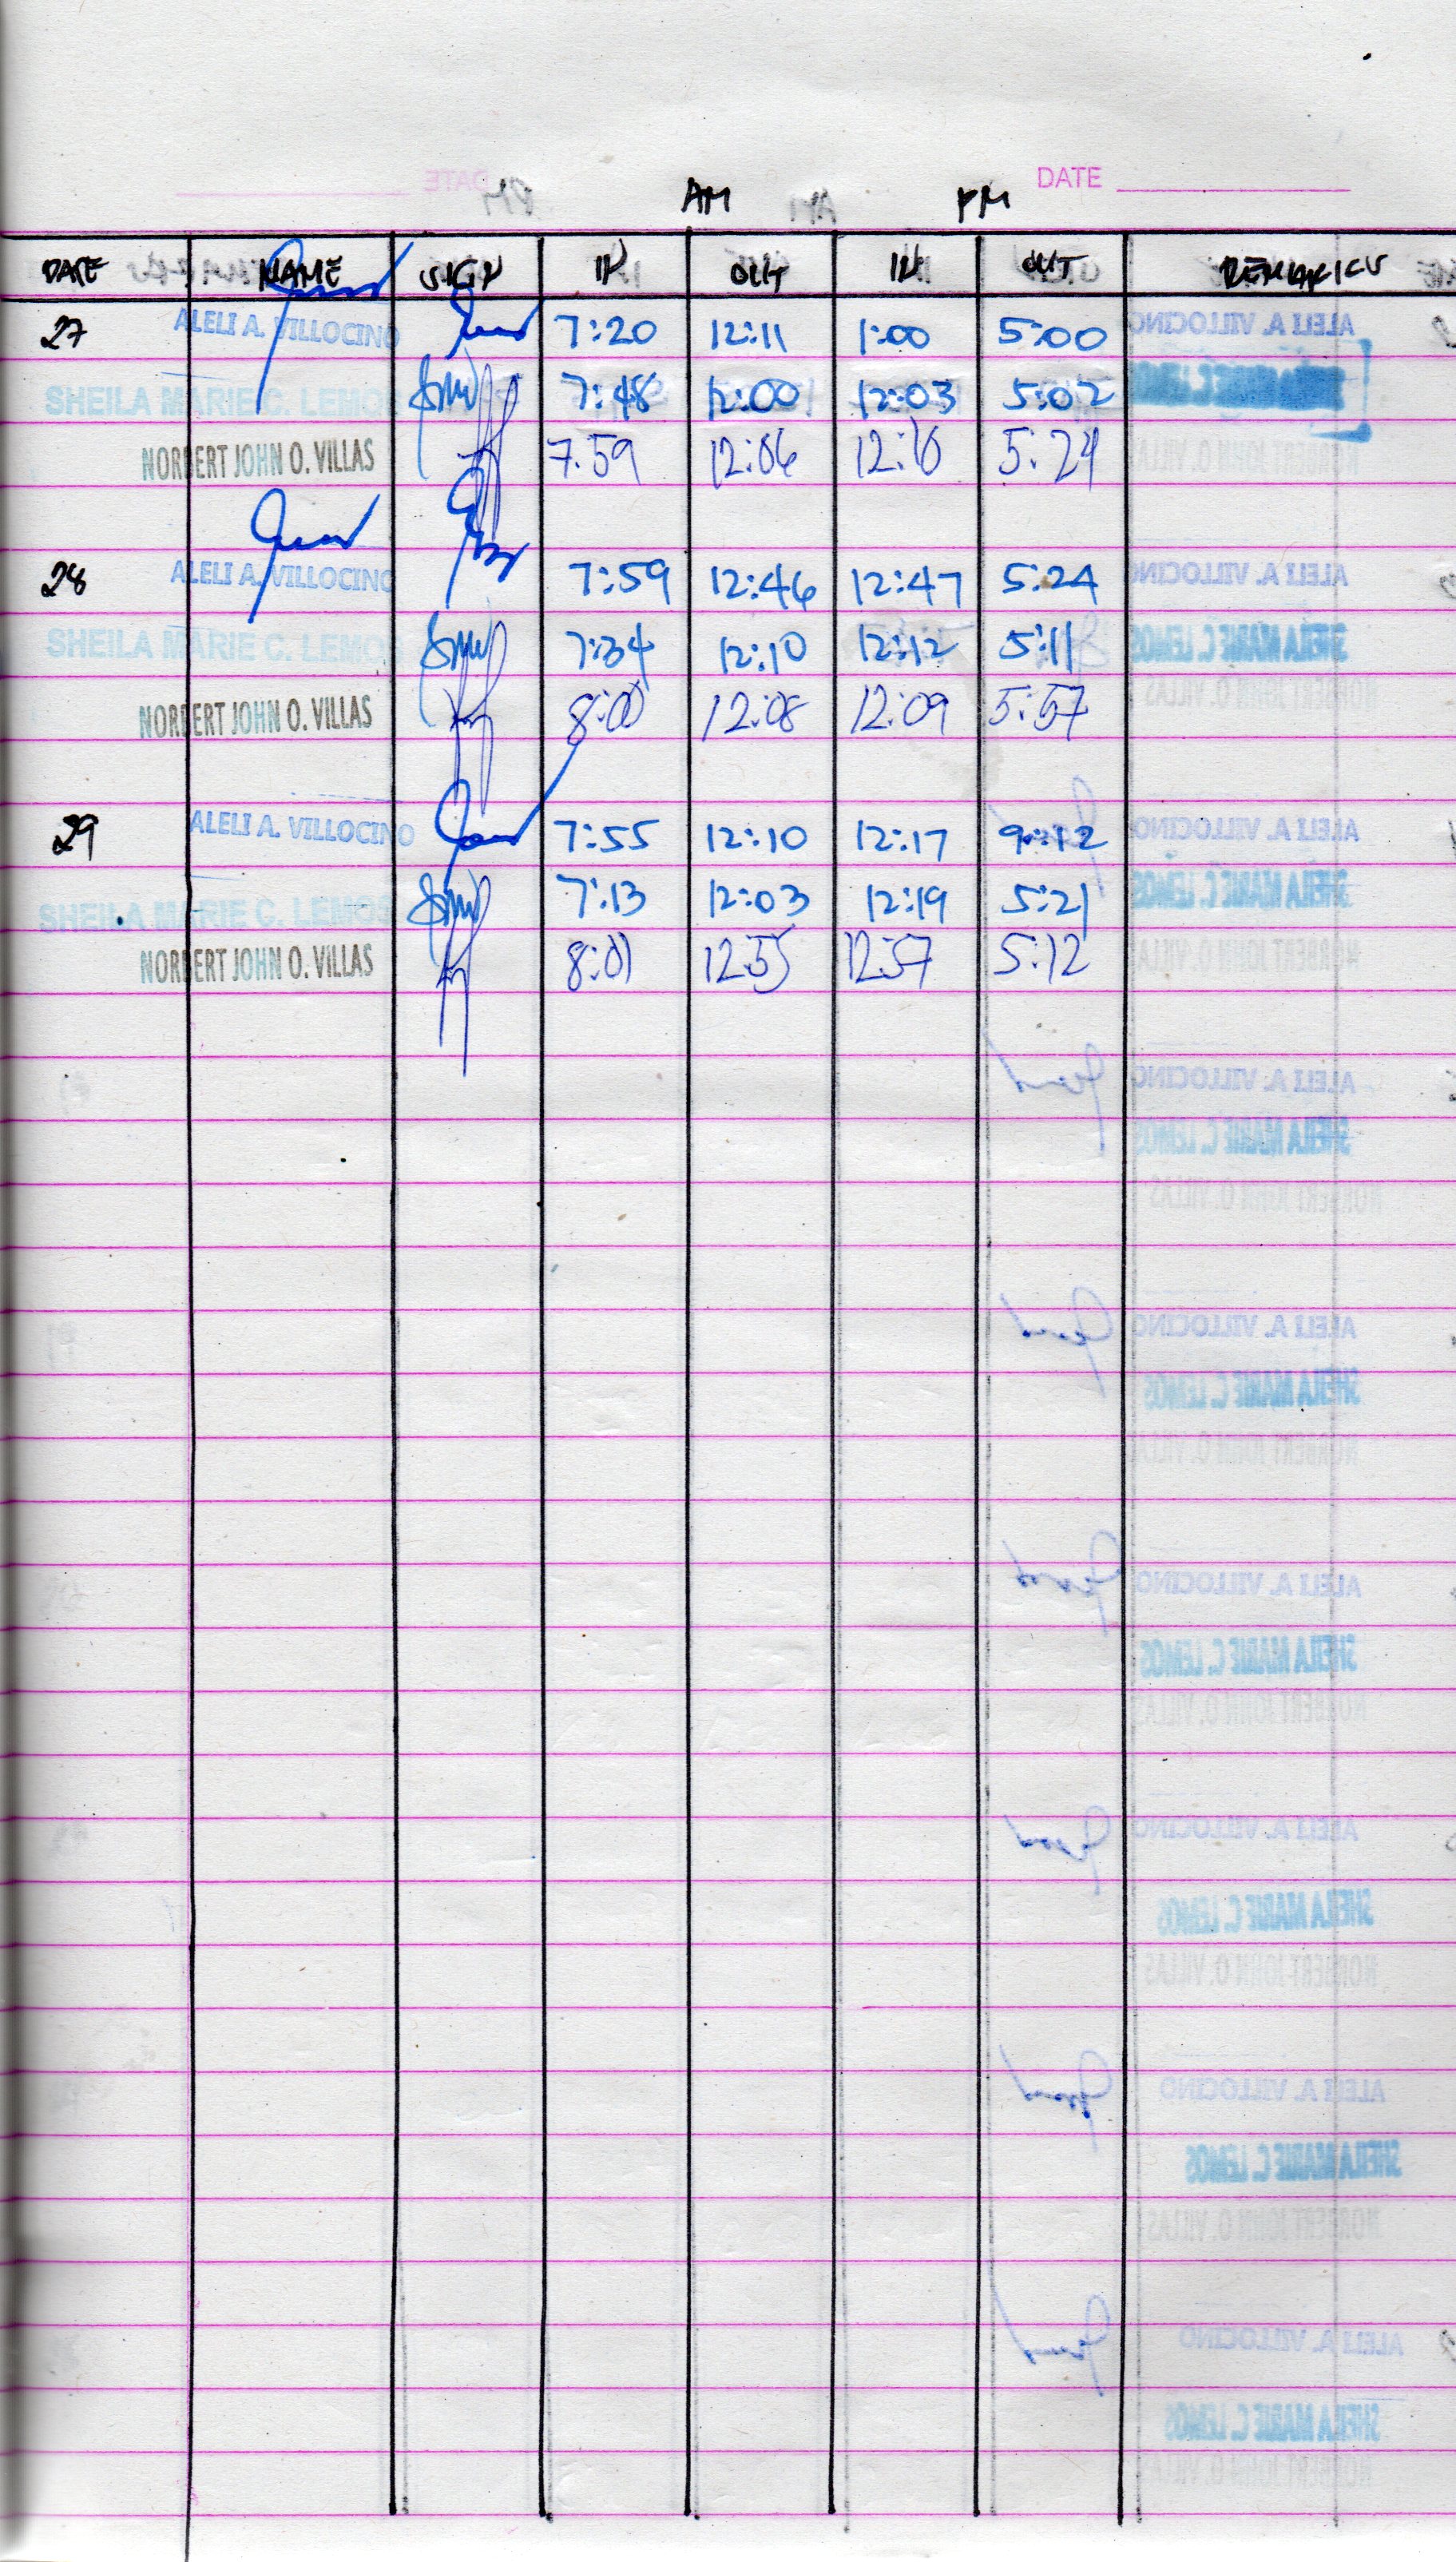 DATE
AM PM
DATE NAME SIGN IN OUT IN OUT REMARKS
27 ALELI A. VILLOCINO 7:20 12:11 1:00 5:00
SHEILA MARIE C. LEMOS 7:48 12:00 12:03 5:02
NORBERT JOHN O. VILLAS 7:59 12:06 12:10 5:24
28 ALELI A. VILLOCINO 7:59 12:46 12:47 5:24
SHEILA MARIE C. LEMOS 7:34 12:10 12:12 5:11
NORBERT JOHN O. VILLAS 8:00 12:08 12:09 5:57
29 ALELI A. VILLOCINO 7:55 12:10 12:17 12
SHEILA MARIE C. LEMOS 7:13 12:03 12:19 5:21
NORBERT JOHN O. VILLAS 12:55 12:57 5:12